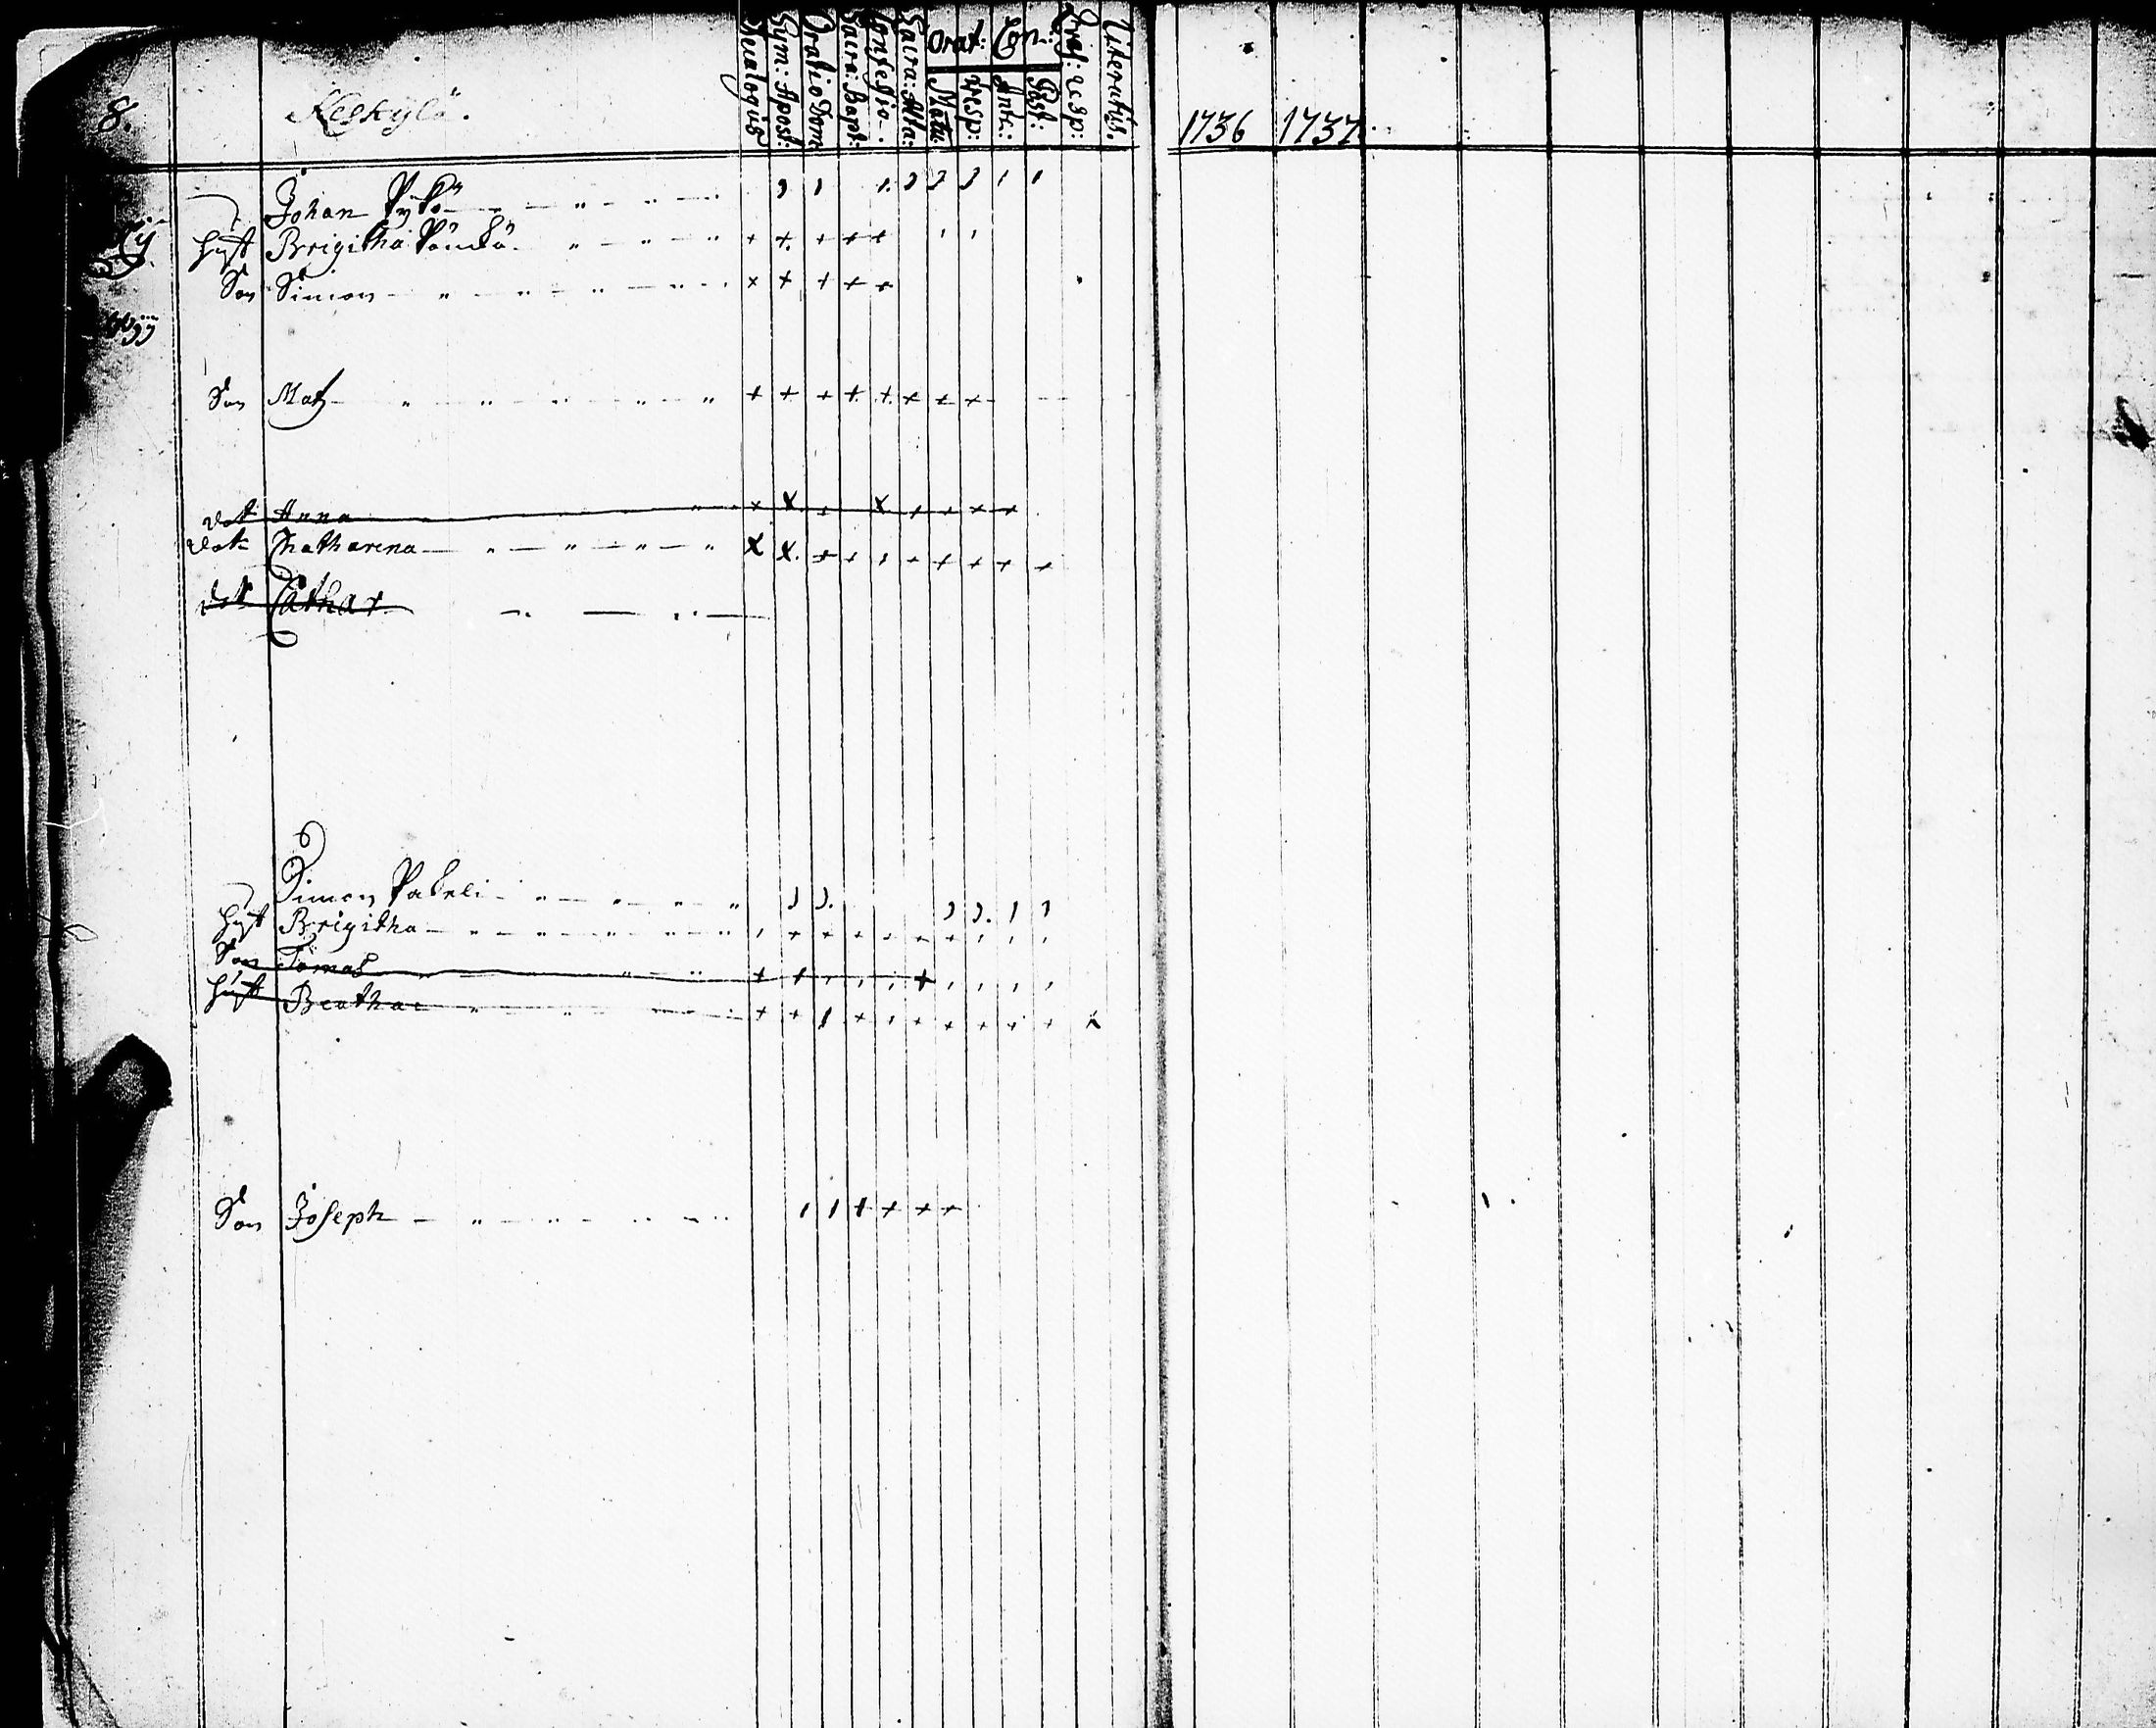 8. Keskylä.
Decalogus
Sym: Apost:
Oratio Dom:
Sacra: Bapt:
Confessio
Sacra: Alta:
Orat: Con:
Matu:
Vesp:
Ante:
Post:
Literatus.
1736 1737
Johan
Hust Brigitha
Son Simon
Son Mats
Dot Anna
Dot Catharina
Dot Cathar
Simon
Hust Brigitha
Son Tomas
Hust Beatha
Son Joseph